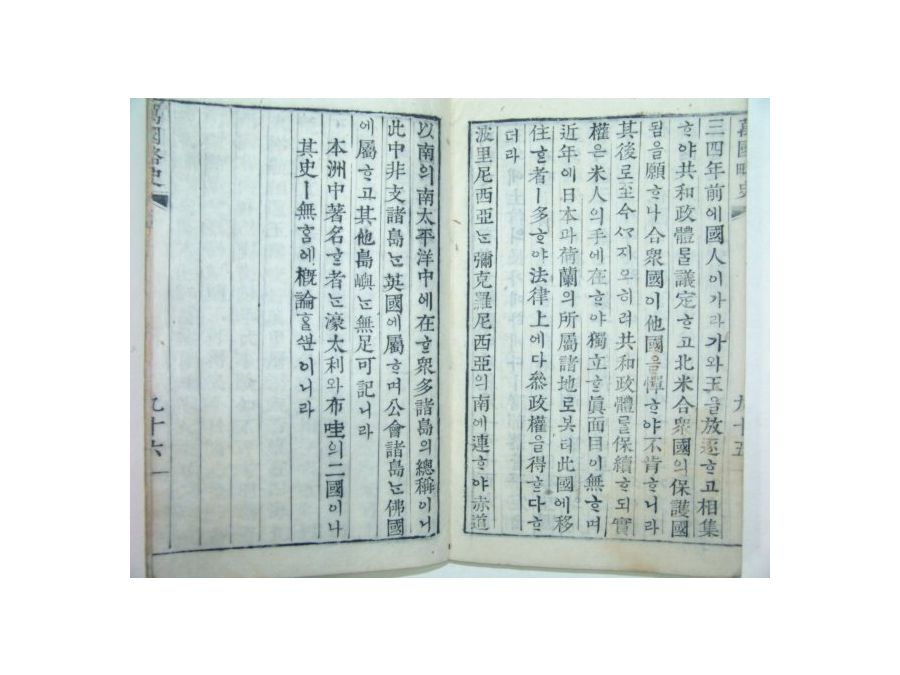 萬國略史
九十五
三四年前에國人이가라가와王을放逐ᄒᆞ고相集
ᄒᆞ야共和政體ᄅᆞᆯ議定ᄒᆞ고北米合衆國의保護國
됨을願ᄒᆞ나合衆國이他國을憚ᄒᆞ야不肯ᄒᆞ니라
其後로至今ᄭᆞ지오히려共和政體를保續ᄒᆞ되實
權은米人의手에在ᄒᆞ야獨立ᄒᆞᆫ眞面目이無ᄒᆞ며
近年에日本과荷蘭의所屬諸地로봇터此國에移
住ᄒᆞᆫ者ㅣ多ᄒᆞ야法律上에다參政權을得ᄒᆞᆫ다ᄒᆞ
더라
波里尼西亞ᄂᆞᆫ彌克羅尼西亞의南에連ᄒᆞ야赤道
以南의南太平洋中에在ᄒᆞᆫ衆多諸島의總稱이니
此中非支諸島ᄂᆞᆫ英國에屬ᄒᆞ며公會諸島ᄂᆞᆫ佛國
에屬ᄒᆞ고其他島嶼ᄂᆞᆫ無足可記니라
本洲中著名ᄒᆞᆫ者ᄂᆞᆫ濠太利와布哇의二國이나
其史ㅣ無ᄒᆞᆷ애槪論ᄒᆞᆯᄲᅮᆫ이니라
萬國略史
九十六